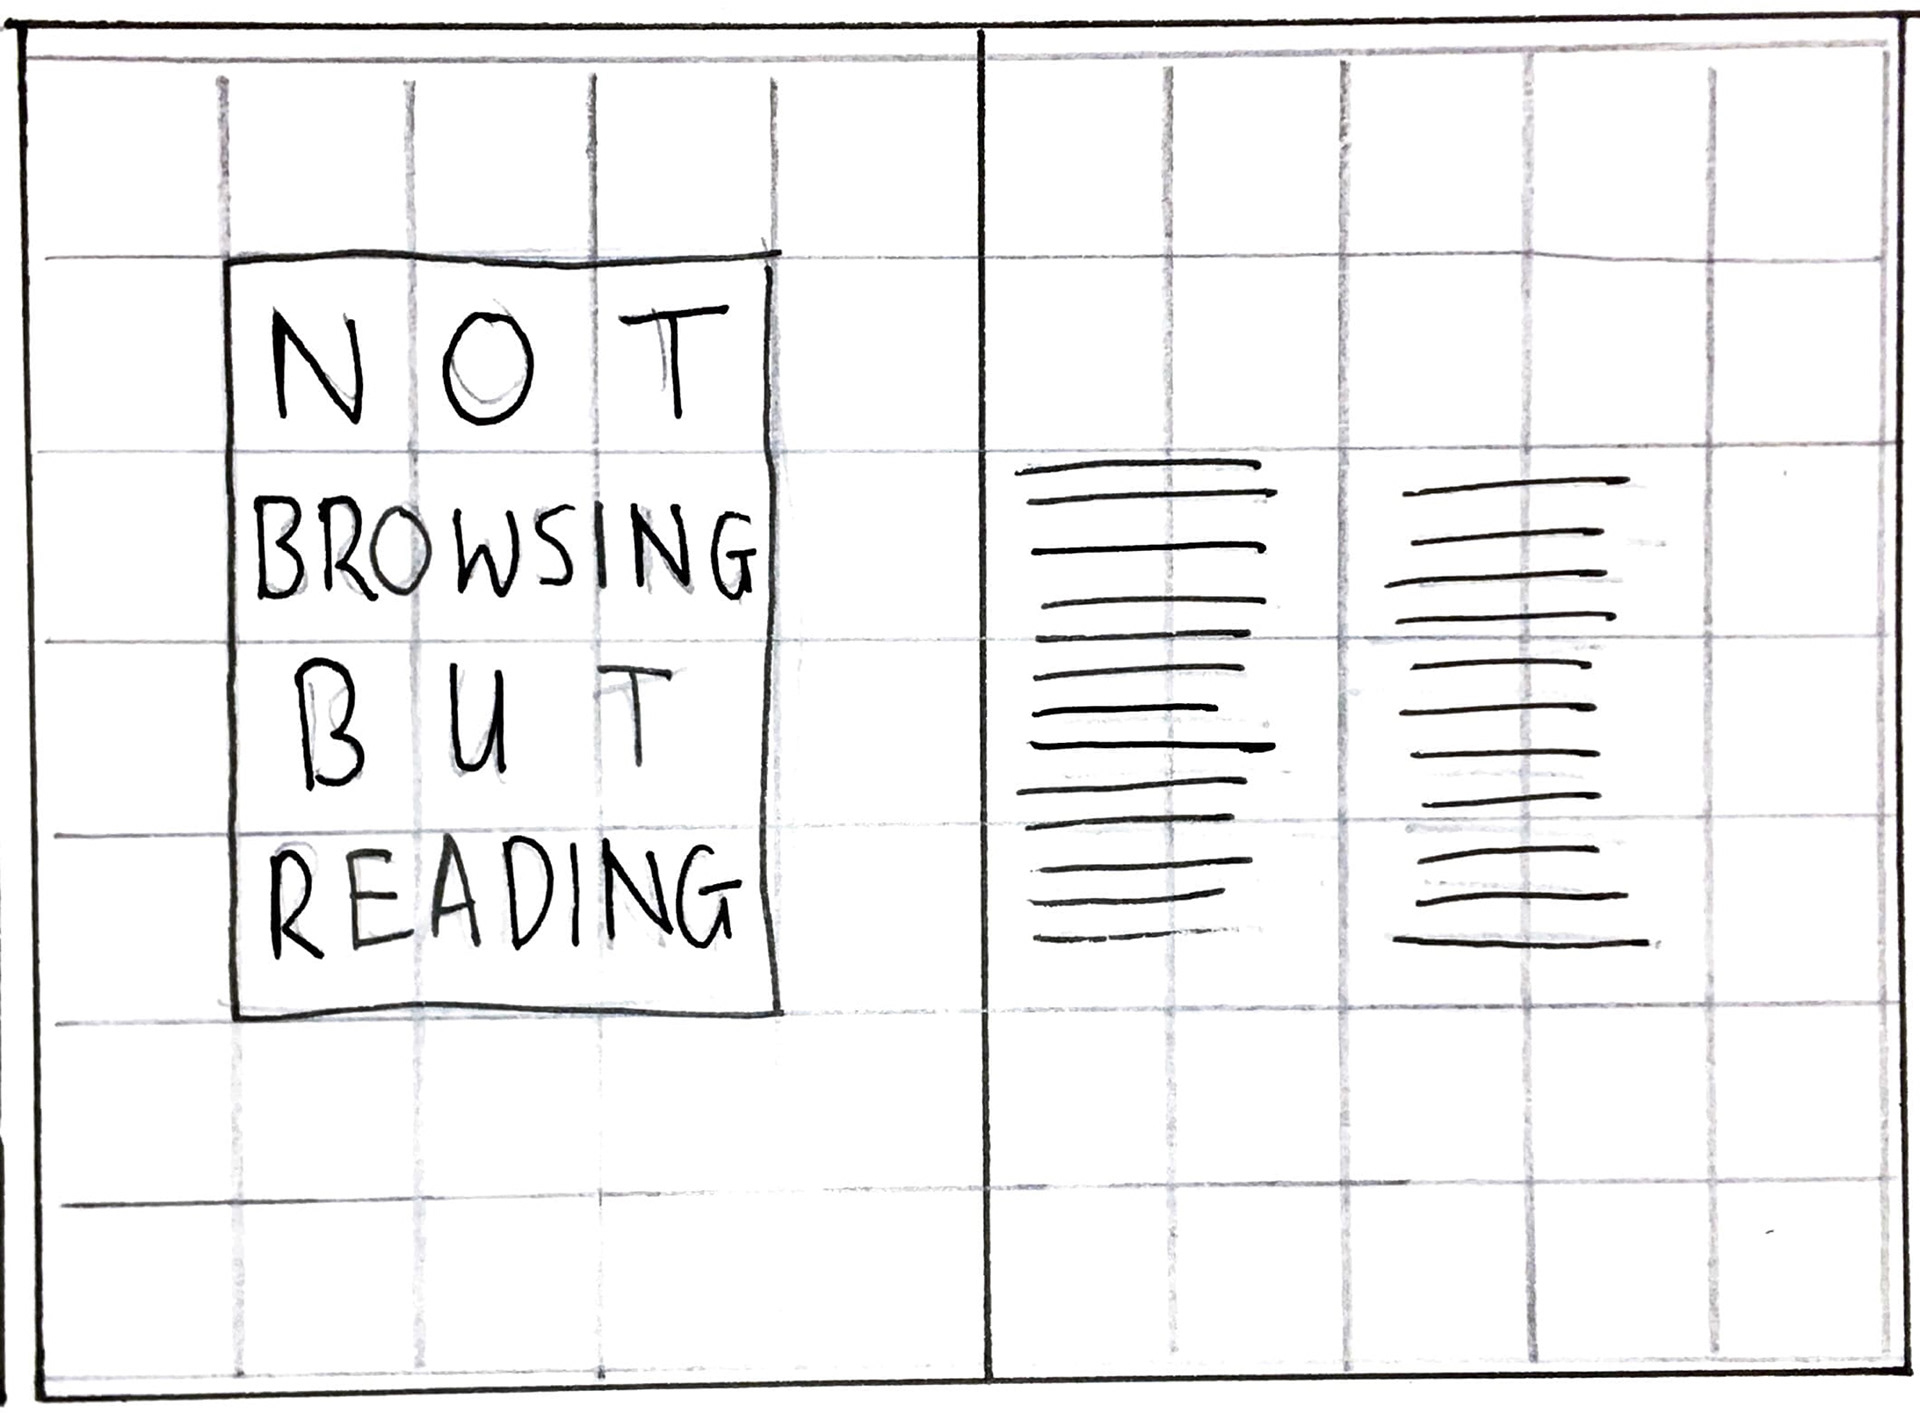 NOT
BROWSING
BUT
READING